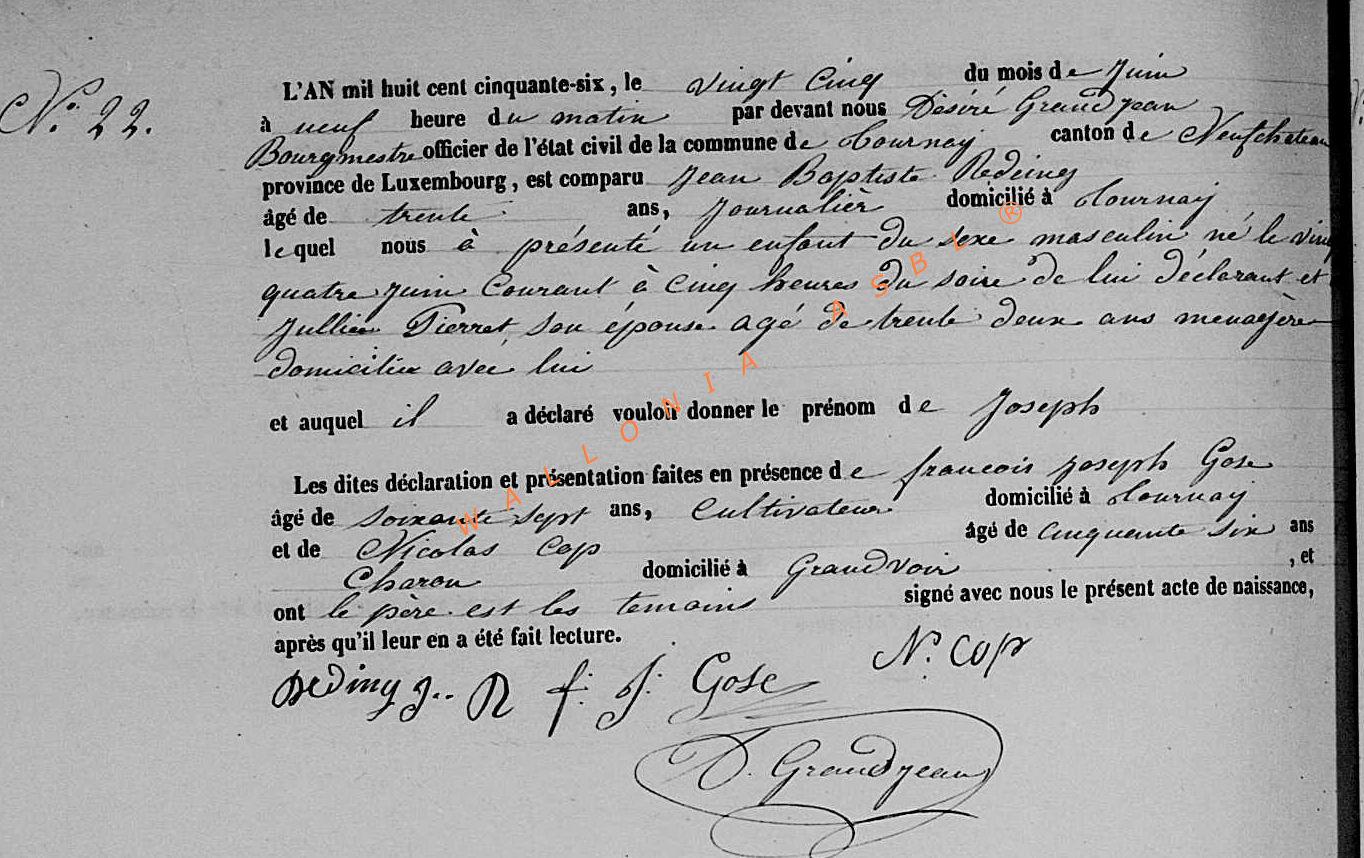 N.° 22.
L'AN mil huit cent cinquante-six, le vingt Cinq du mois de Juin
à neuf heure du matin par devant nous Désiré Grandjean
Bourgmestre officier de l'état civil de la commune de Tournay canton de Neufchateau
province de Luxembourg, est comparu Jean Baptiste Redeing
âgé de trente ans, Journalièr domicilié à Tournay
lequel nous à présenté un enfant du sexe masculin né le vingt
quatre juin Courant à Cinq heures du soire de lui déclarant et
Jullien Pierret, son épouse agé de trente deux ans menagère
domicilié avec lui
et auquel il a déclaré vouloir donner le prénom de Joseph
Les dites déclaration et présentation faites en présence de francois joseph Gose
âgé de soixante sept ans, Cultivateur domicilié à Tournay
et de Nicolas Cop âgé de cinquante six ans
Charon domicilié à Grandvoir , et
ont le père est les temoins signé avec nous le présent acte de naissance,
après qu'il leur en a été fait lecture.
Reding J.. B f: J: Gose N. Cop
D. Grandjean
WALLONIA ASBL ®